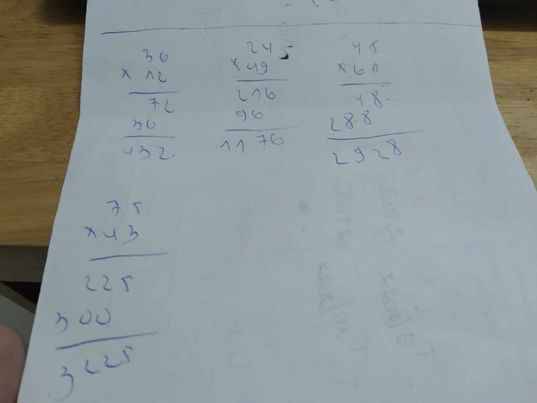 36
× 12
72
36
432
24
× 49
216
96
1176
48
× 61
48
288
2928
75
× 43
225
300
3225